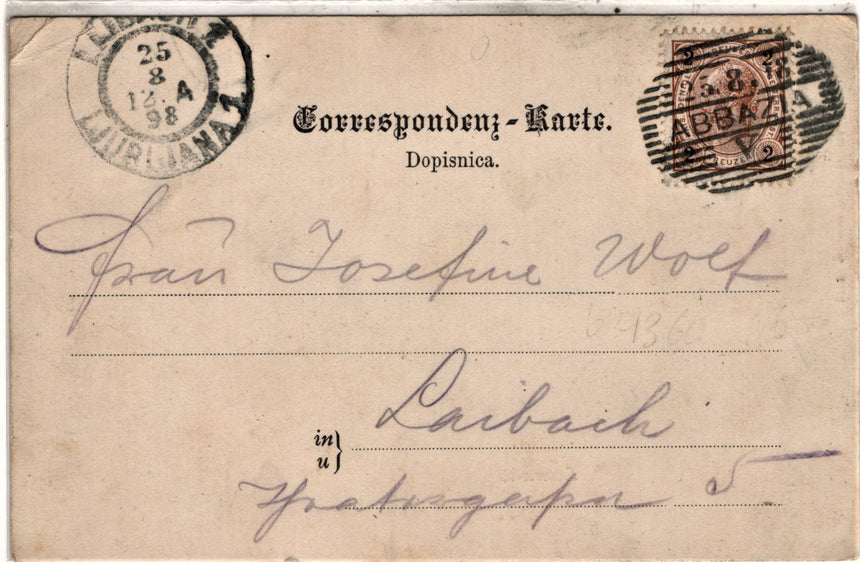 LAIBACH 1
25
8
12. A
98
LJUBLJANA 1
2 2
8. 98
ABBAZIA
V
2 KREUZER 2
Correspondenz-Karte.
Dopisnica.
Frau Josefine Wolf
64360
in Laibach
u
5